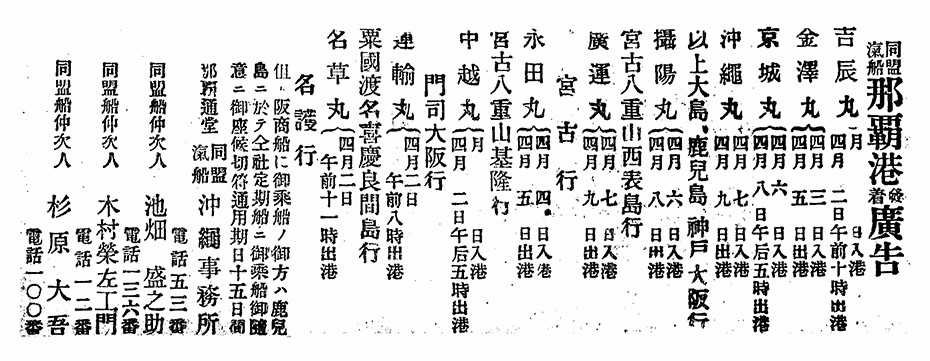 同盟汽船那覇港発着廣告
吉辰丸 月 日入港
四月 二日午前十時出港
金澤丸 四月 三 日入港
四月 五 日出港
京城丸 四月 六 日入港
四月 八 日午后五時出港
沖繩丸 四月 七 日入港
四月 九 日出港
以上大島、鹿兒島、神戸、大阪行
攝陽丸 四月 六 日入港
四月 八 日出港
宮古八重山西表島行
廣運丸 四月 七 日入港
四月 九 日出港
宮古行
永田丸 四月 四 日入港
四月 五 日出港
宮古八重山基隆行
中越丸 月 日入港
四月 二日午后五時出港
門司大阪行
運輸丸 四月二日
午前八時出港
粟國渡名喜慶良間島行
名草丸 四月二日
午前十一時出港
名護行
但 阪商船に御乗船ノ御方ハ鹿兒
島ニ於テ仝社定期船ニ御乗船御隨
意ニ御座候切符通用期日十五日間
那覇通堂 同盟汽船 沖繩事務所
電話五三番
同盟船仲次人 池畑盛之助
電話一三六番
同盟船仲次人 木村榮左工門
電話一二番
同盟船仲次人 杉原大吾
電話一〇〇番